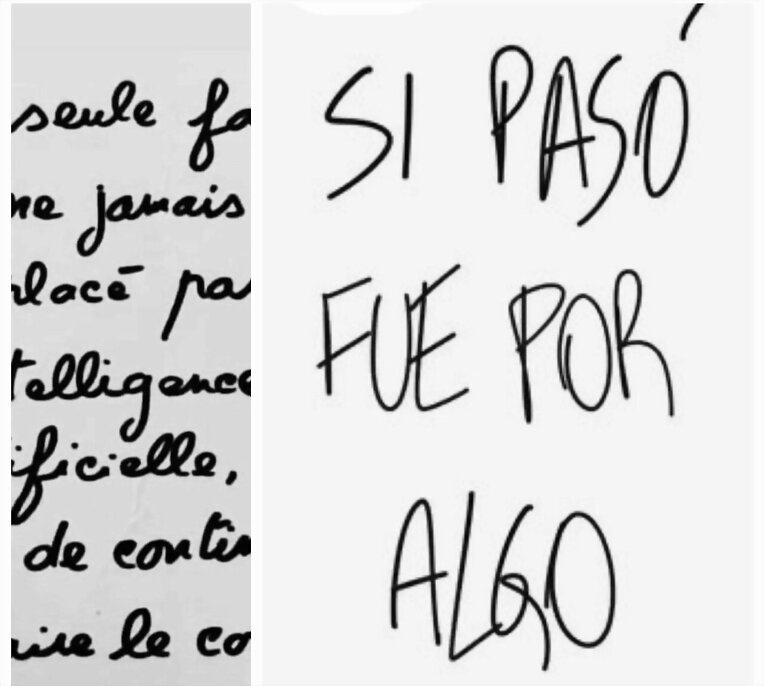 seule fa
ne jamais
lacé pa
telligence
ificielle,
de contin
ire le co
SI PASÓ
FUE POR
ALGO